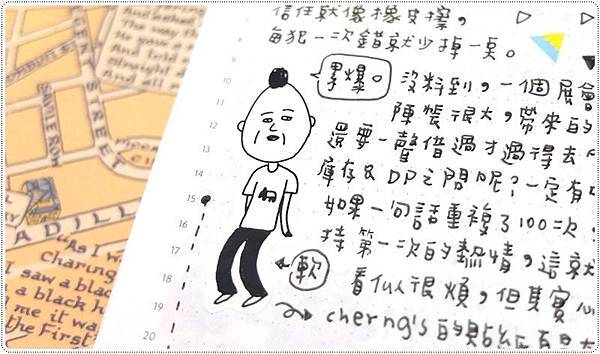 信任就像橡皮擦，
每犯一次錯就少掉一点。
累爆。
沒料到，一個展會
很大，帶來的
還要一聲借過才過得去
庫存及DP之間呢？一定有
如果一句話重複了100次，
持第一次的熱情，這就
軟
看似很煩，但其實心
cherng's 的貼紙
8
9
10
11
12
13
14
15
16
17
18
19
20
The way
And told
And all
STREET
SAVILE ROW
ADILL
"As I w
Charing
I saw a black
a black h
me it wa
the First